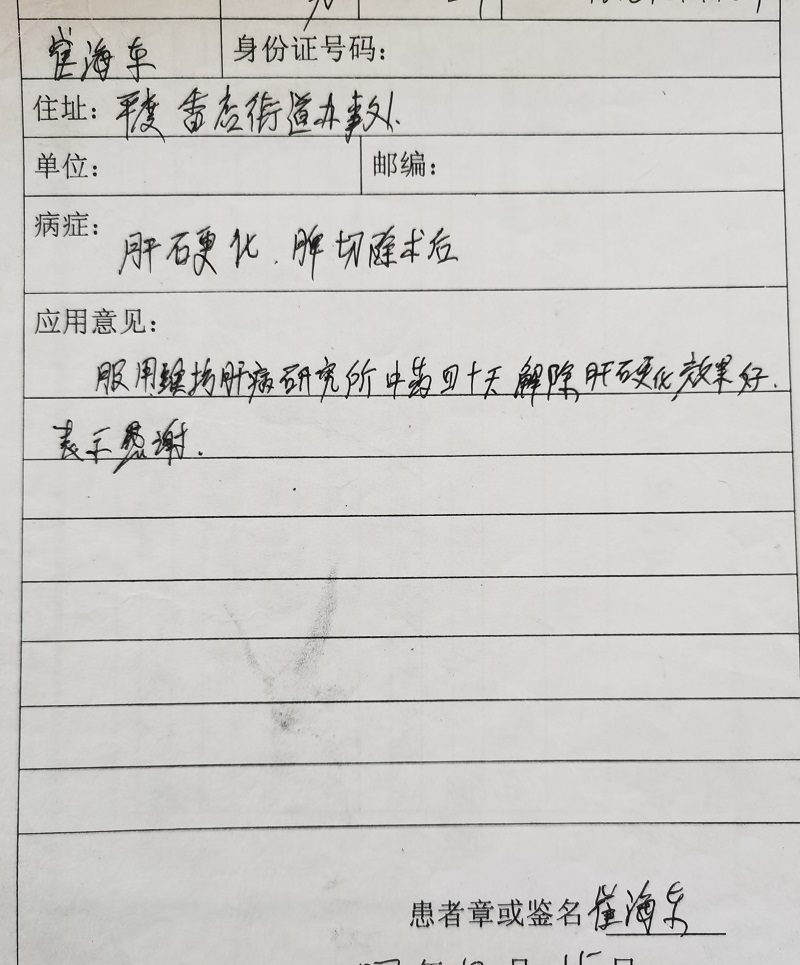 崔海东 身份证号码:
住址: 平度 香店街道办事处
单位: 邮编:
病症: 肝硬化、脾切除术后
应用意见:
服用肝病研究所中药四十天解除肝硬化效果好.
表示感谢.
患者章或鉴名 崔海东